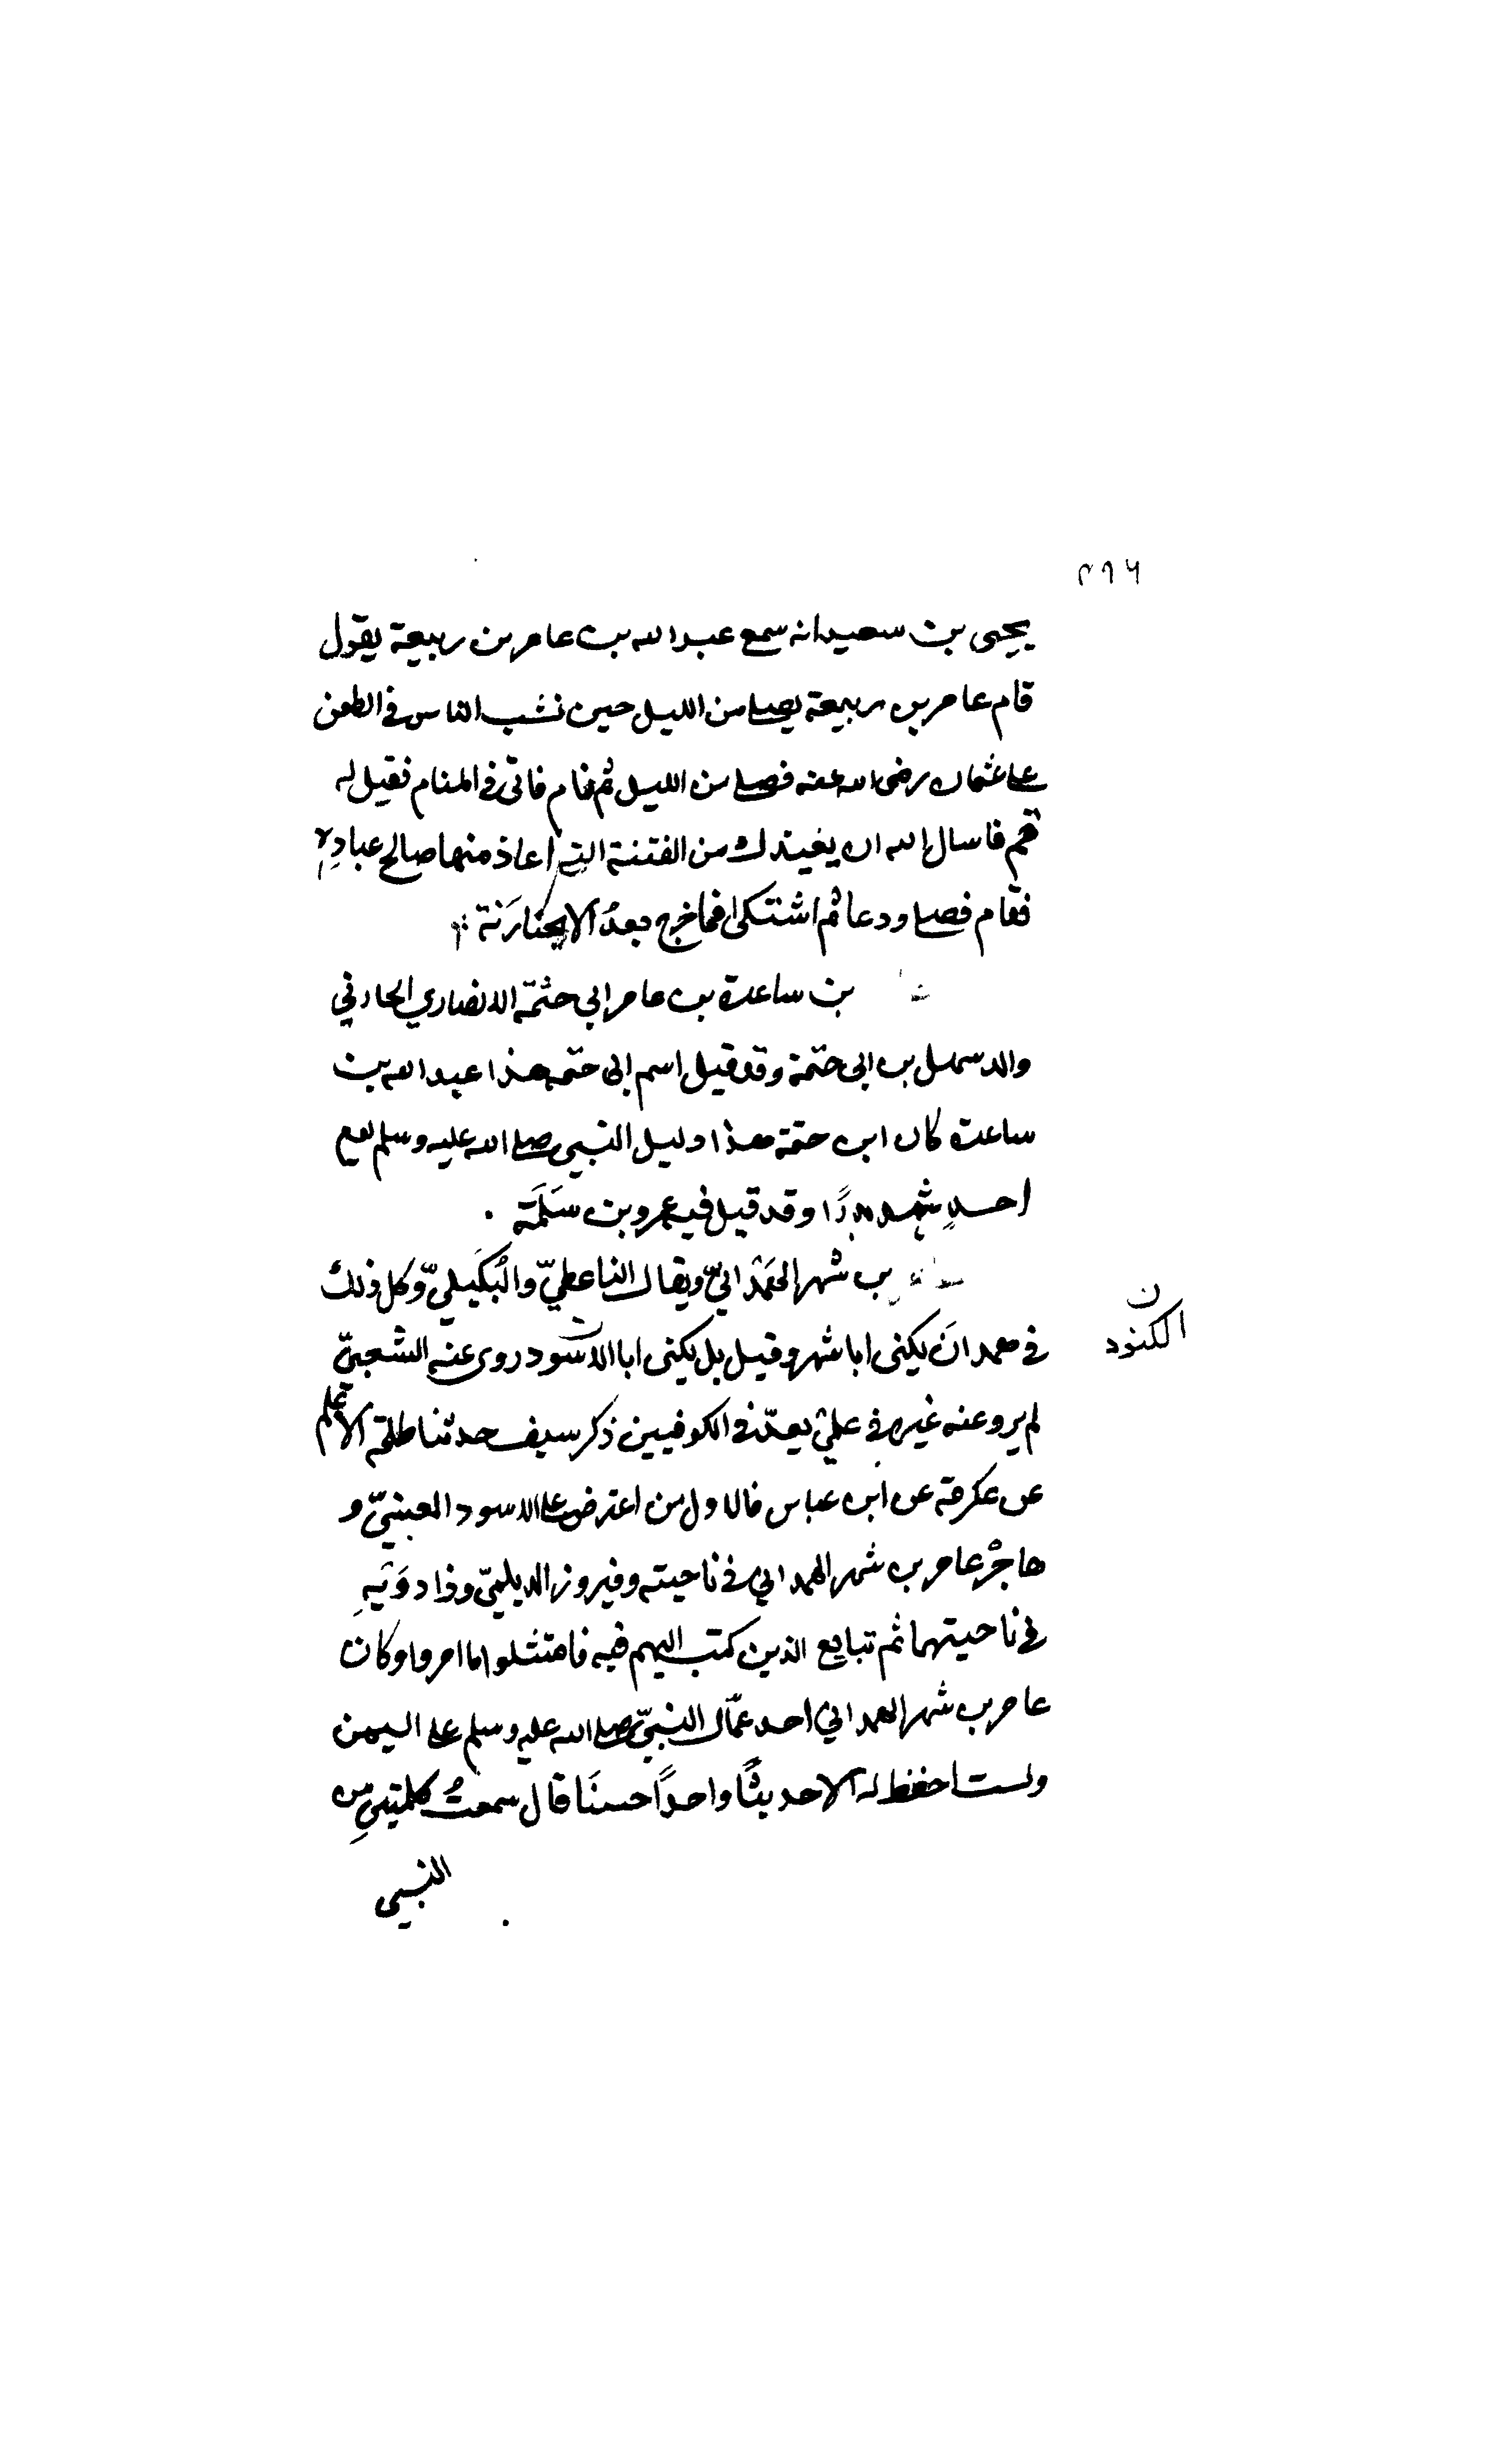 ٢٩٦
يحيى بن سعيد انه سمع عبد الله بن عامر بن ربيعة يقول
قام عامر بن ربيعة يصلي من الليل حين نشب الناس في الطعن
على عثمان رضي الله عنه فصلى من الليل ثم نام فاتى في المنام فقيل له
قم فاسال الله ان يعيذك من الفتنة التي اعاذ منها صالح عباده
فقام فصلى ودعا ثم اشتكى فما خرج بعدُ الا بجنازته
بن ساعدة بن عامر ابي حثمة الانصاري الحارثي
والد سهل بن ابي حثمة وقد قيل اسم ابي حثمة هذا عبد الله بن
ساعدة كان ابن حتمة هذا دليل النبي صلى الله عليه وسلم يوم
احدٍ شهد بدرًا وقد قيل فيه عمرو بن سَلَمَة .
بن شهر الهَمْدانيّ ويقال الناعطيّ والبَكِيليّ وكل ذلك
في همدانَ يكنى ابا شهر وقيل بل يكنى ابا الاسود روى عنه الشعبيّ
ن
الكنود
لم يرو عنه غيره في علمي يعدّ في الكوفيين ذكر سيف حدثنا طلحة الاعلم
عن عكرمة عن ابن عباس قال اول من اعترض على الاسود العنسيّ و
هاجرْ عامر بن شهر الهمداني في ناحيته وفيروز الديلميّ وذادوَيْهِ
في ناحيتهما ثم تبايع الذين كتب اليهم فيه فامتثلوا ما امروا وكان
عامر بن شهر الهمداني احد عمّال النبيّ صلى الله عليه وسلم على اليمن
ولست احفظ له الا حديثًا واحدًا حسنًا قال سمعتُ كلمتينِ من
النبي